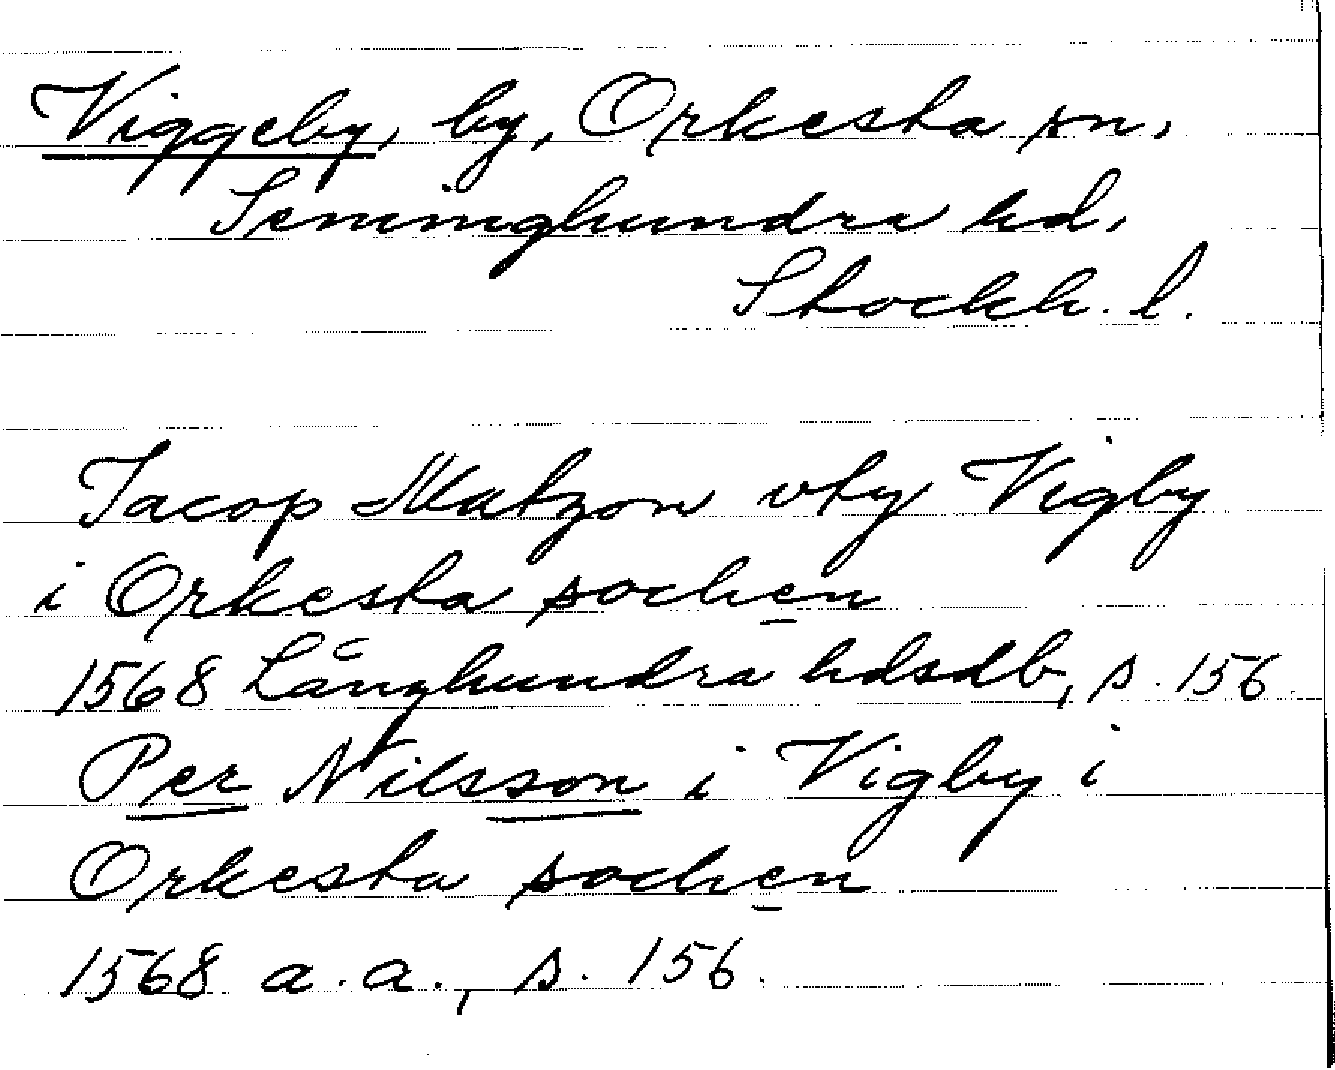 Viggeby, by, Orkesta sn,
Seminghundra hd,
Stockh. l.
Jacop Matzon vty Vigby
i Orkesta sochen
1568 Långhundra hdsdb, s. 156
Per Nilsson i Vigby i
Orkesta sochen
1568 a.a., s. 156.